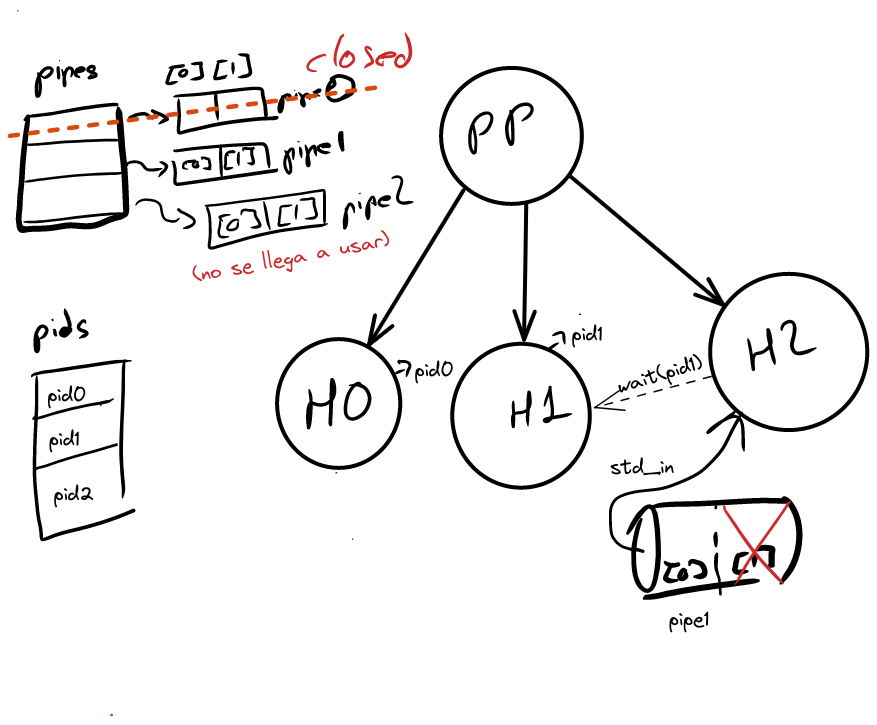 closed
pipes
[0] [1]
pipe0
[0] [1]
pipe1
[0] [1]
pipe2
(no se llega a usar)
PP
pids
pid0
pid1
pid2
H0
pid0
H1
pid1
H2
wait(pid1)
std_in
[0] [1]
pipe1